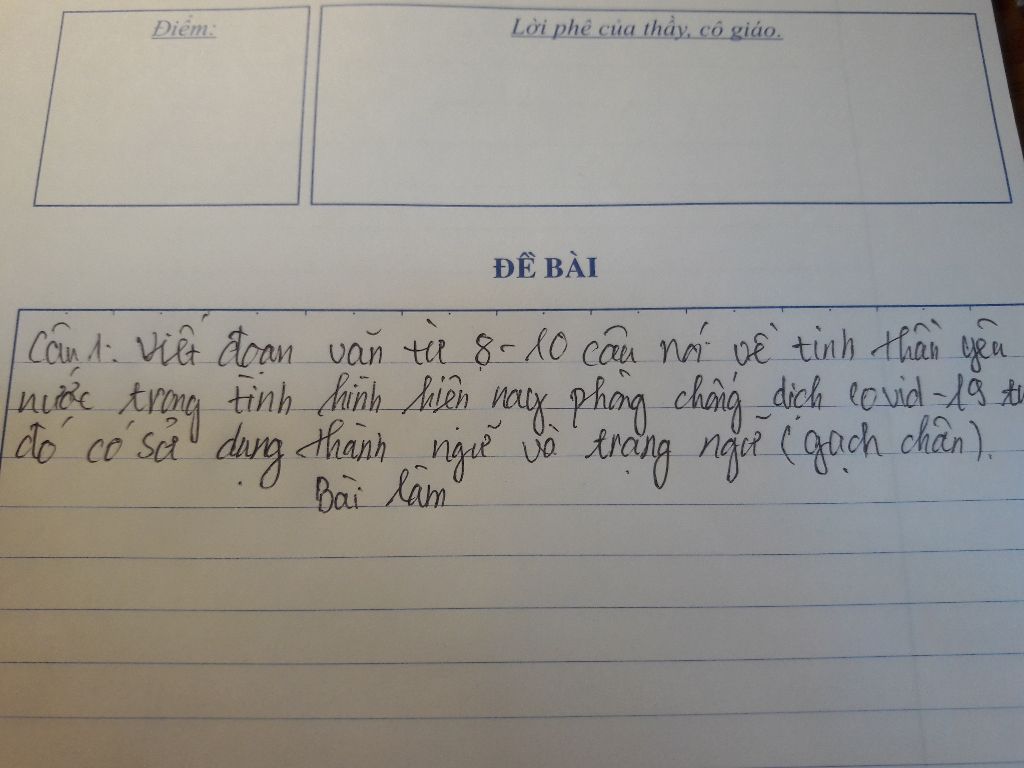 Điểm:
Lời phê của thầy, cô giáo.
ĐỀ BÀI
Câu 1: Viết đoạn văn từ 8-10 câu nói về tinh thần yêu
nước trong tình hình hiện nay phòng chống dịch covid-19
đó có sử dụng thành ngữ và trạng ngữ (gạch chân).
Bài làm